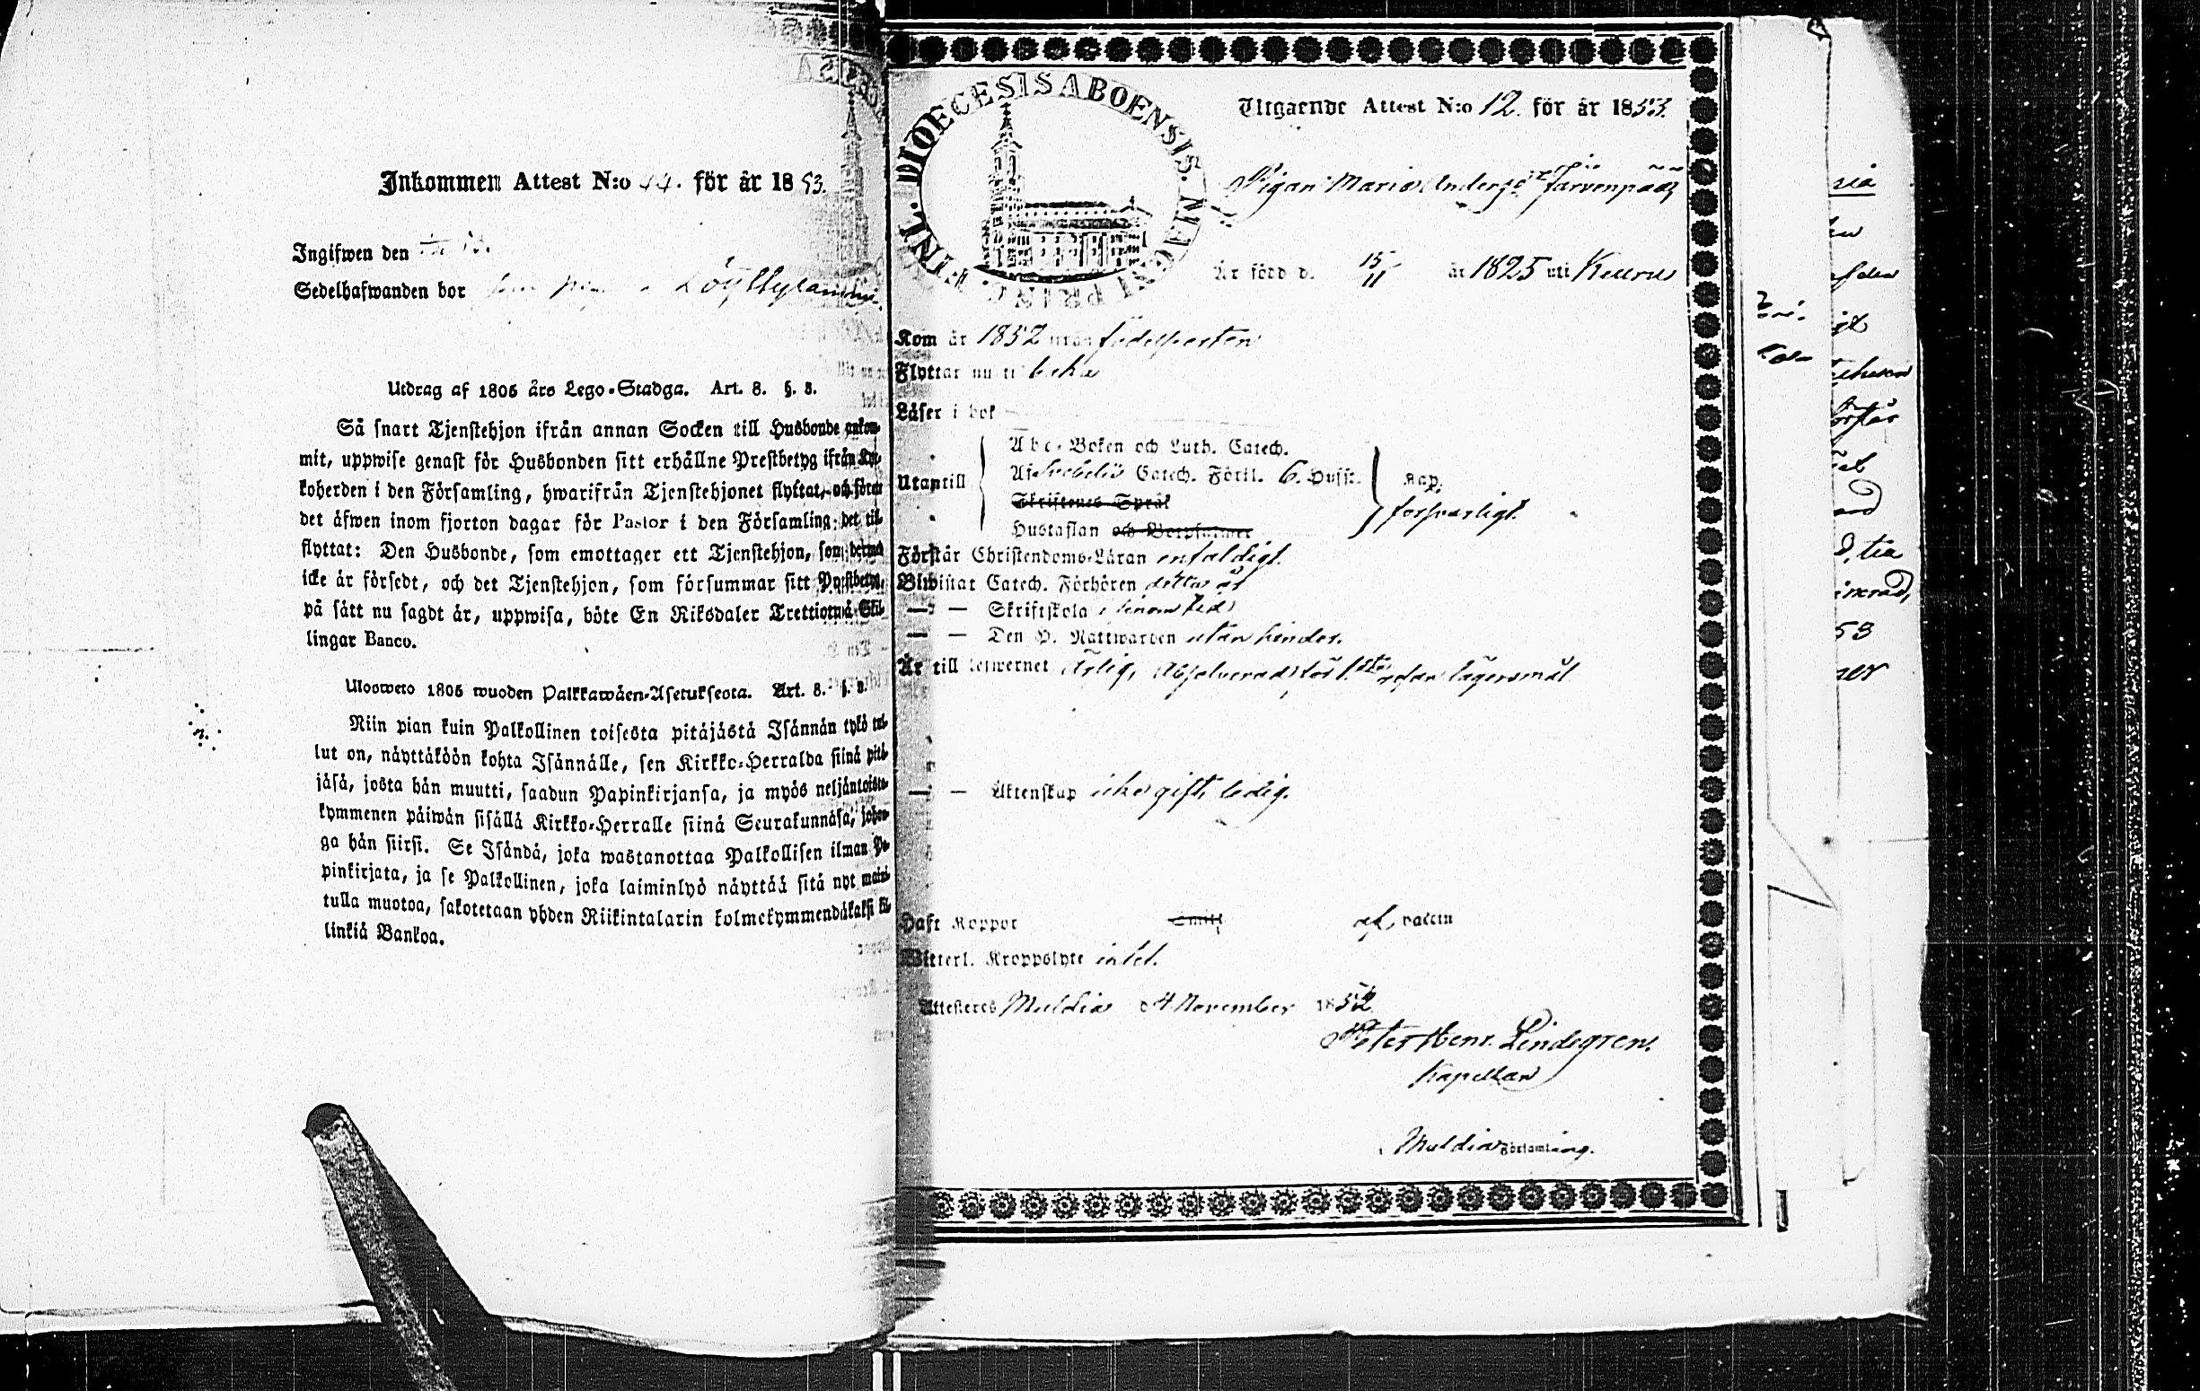 Inkommen Attest N:o 44. för år 1853.
Ingifwen den
Sedelhafwanden bor Löytty
Utdrag af 1805 års Lego-Stadga. Art. 8. §. 8.
Så snart Tjenstehjon ifrån annan Socken till Husbonde ankom-
mit, uppwise genast för Husbonden sitt erhållne Prestbetyg ifrån Kyr-
koherden i den Församling, hwarifrån Tjenstehjonet flyttat, och förete
det äfwen inom fjorton dagar för Pastor i den Församling det till-
flyttat: Den Husbonde, som emottager ett Tjenstehjon, som dermed
icke är försedt, och det Tjenstehjon, som försummar sitt Prestbetyg,
på sätt nu sagdt är, uppwisa, böte En Riksdaler Trettiotwå Skil-
lingar Banco.
Ulosweto 1805 wuoden Palkkawäen-Asetuksesta. Art. 8. §. 8.
Niin pian kuin Palkollinen toisesta pitäjästä Isännän tykö tul-
lut on, näyttäköön kohta Isännälle, sen Kirkko-Herralda siinä pitä-
jäsä, josta hän muutti, saadun Papinkirjansa, ja myös neljäntoista-
kymmenen päiwän sisällä Kirkko-Herralle siinä Seurakunnasa, johon-
ga hän siirsi. Se Isändä, joka wastanottaa Palkollisen ilman Pa-
pinkirjata, ja se Palkollinen, joka laiminlyö näyttää sitä nyt maini-
tulla muotoa, sakotetaan yhden Riikintalarin kolmekymmendäkaksi ki-
linkiä Bankoa.
DIOECESIS ABOENSIS. MAGNI PRINC. FINL.
Utgaende Attest N:o 12. för år 1853.
Pigan Maria Andersdr Järvenpää
Är född d. 15/11 år 1825 uti Keuru
Kom år 1852 från födelseorten
Flyttar nu til
Läser i bok
Abc-Boken och Luth. Catech.
Utantill Af Svebelii Catech. Förkl. 6. Hufst. kap. försvarligt.
Skriftenes Språk
Hustaflan och Botpsalmer
Förstår Christendoms-Läran enfaldigt.
Bewistat Catech. Förhören detta år
— — Skriftskola
— — Den H. Nattwarden utan hinder.
Är till lefwernet ärlig, absolverad för 1sta resan lägersmål
— — Äktenskap icke gift, ledig.
Haft Koppor Smitt af vaccin
Witterl. Kroppslyte intet.
Attesteras Muldia d 4 November 1852
Peter Henr. Lindegren.
Kapellan
Muldia Församling.